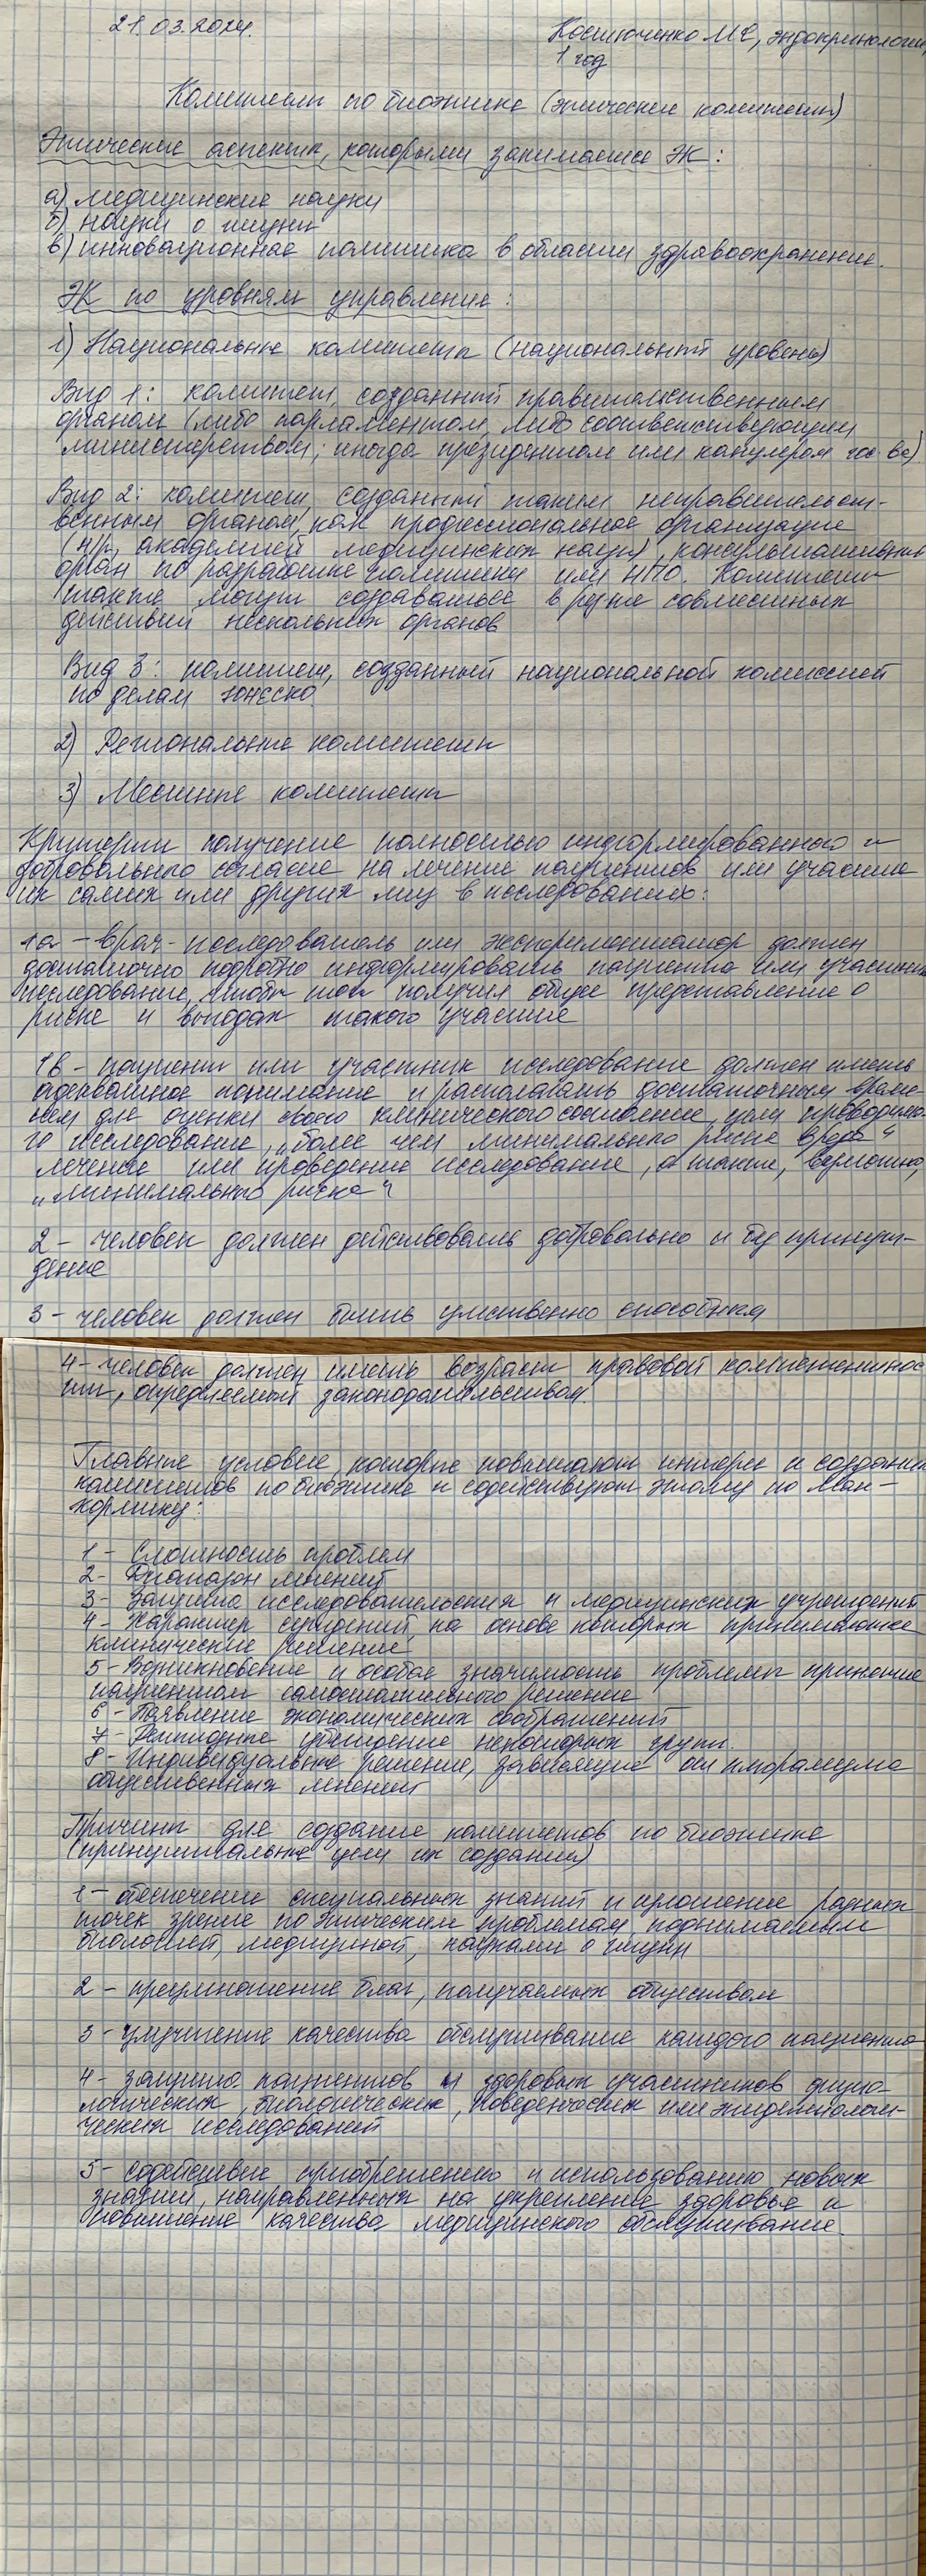 21.03.2024.
Костюченко МС, эндокринология,
1 год
Комитеты по биоэтике (этические комитеты)
Этические аспекты, которыми занимается ЭК:
а) медицинские науки
б) науки о жизни
в) инновационная политика в области здравоохранения.
ЭК по уровням управления:
1) Национальные комитеты (национальный уровень)
Вид 1: комитет, созданный правительственным
органом (либо парламентом, либо соответствующим
министерством; иногда президентом или канцлером гос-ва)
Вид 2: комитет, созданный таким неправительст-
венным органом, как профессиональная организация
(н/р, академией медицинских наук), консультативный
орган по разработке политики или НПО. Комитеты
также могут создаваться в рез-те совместных
действий нескольких органов
Вид 3: комитет, созданный национальной комиссией
по делам ЮНЕСКО
2) Региональные комитеты
3) Местные комитеты
Критерии получения полностью информированного и
добровольного согласия на лечение пациентов или участия
их самих или других лиц в исследованиях:
1а - врач-исследователь или экспериментатор должен
достаточно подробно информировать пациента или участника
исследования, чтобы тот получил общее представление о
риске и выгодах такого участия
1в - пациент или участник исследования должен иметь
адекватное понимание и располагать достаточным време-
нем для оценки своего клинического состояния, цели проводимо-
го исследования, „более чем минимального риска вреда"
лечения или проведения исследования, а также, возможно,
„минимального риска"
2 - человек должен действовать добровольно и без принуж-
дения
3 - человек должен быть умственно способным
4 - человек должен иметь возраст правовой компетентнос
ти, определяемый законодательством.
Главные условия, которые повышают интерес к созданию
комитетов по биоэтике и содействуют этому по Мак-
Кормику:
1 - Сложность проблем
2 - Диапазон мнений
3 - Защита исследовательских и медицинских учреждений
4 - Характер суждений, на основе которых принимаются
клинические решения
5 - Возникновение и особая значимость проблемы принятия
пациентом самостоятельного решения
6 - Появление экономических соображений
7 - Религиозные убеждения некоторых групп.
8 - Индивидуальные решения, зависящие от плюрализма
общественных мнений
Причины для создания комитетов по биоэтике
(принципиальные цели их создания)
1 - обеспечение специальных знаний и изложение разных
точек зрения по этическим проблемам, поднимаемым
биологией, медициной, науками о жизни
2 - преумножение благ, получаемых обществом
3 - улучшение качества обслуживания каждого пациента
4 - защита пациентов и здоровых участников физио-
логических, биологических, поведенческих или эпидемиологи-
ческих исследований
5 - содействие приобретению и использованию новых
знаний, направленных на укрепление здоровья и
повышение качества медицинского обслуживания.